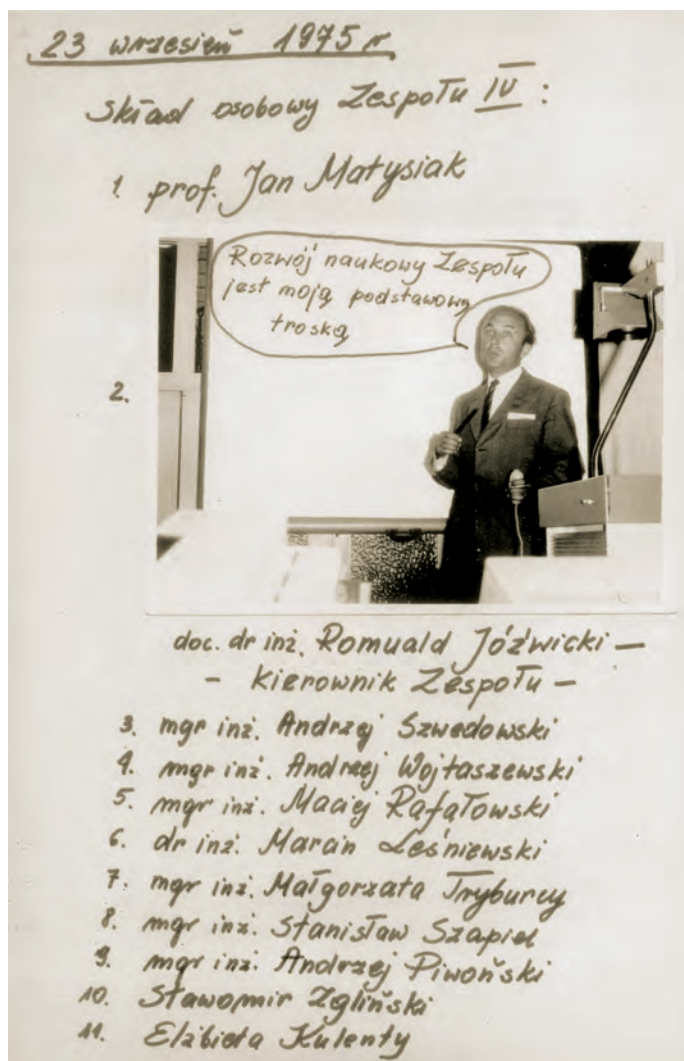 23 wrzesień 1975 r
Skład osobowy Zespołu IV :
1. prof. Jan Matysiak
Rozwój naukowy Zespołu
jest moją podstawową
troską
2.
doc. dr inż. Romuald Jóźwicki —
– kierownik Zespołu –
3. mgr inż. Andrzej Szwedowski
4. mgr inż. Andrzej Wojtaszewski
5. mgr inż. Maciej Rafałowski
6. dr inż. Marcin Leśniewski
7. mgr inż. Małgorzata Tryburcy
8. mgr inż. Stanisław Szapiel
9. mgr inż. Andrzej Piwoński
10. Sławomir Zgliński
11. Elżbieta Kulenty